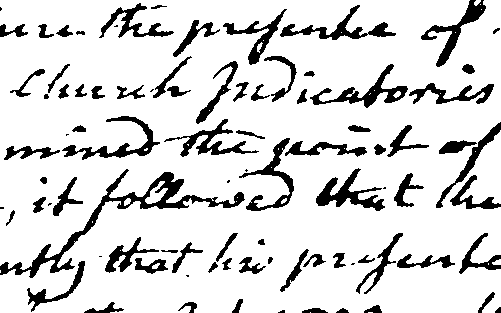 ure the presentee of
Church Judicatories
mined the point of
, it followed that the
ntly that his presente